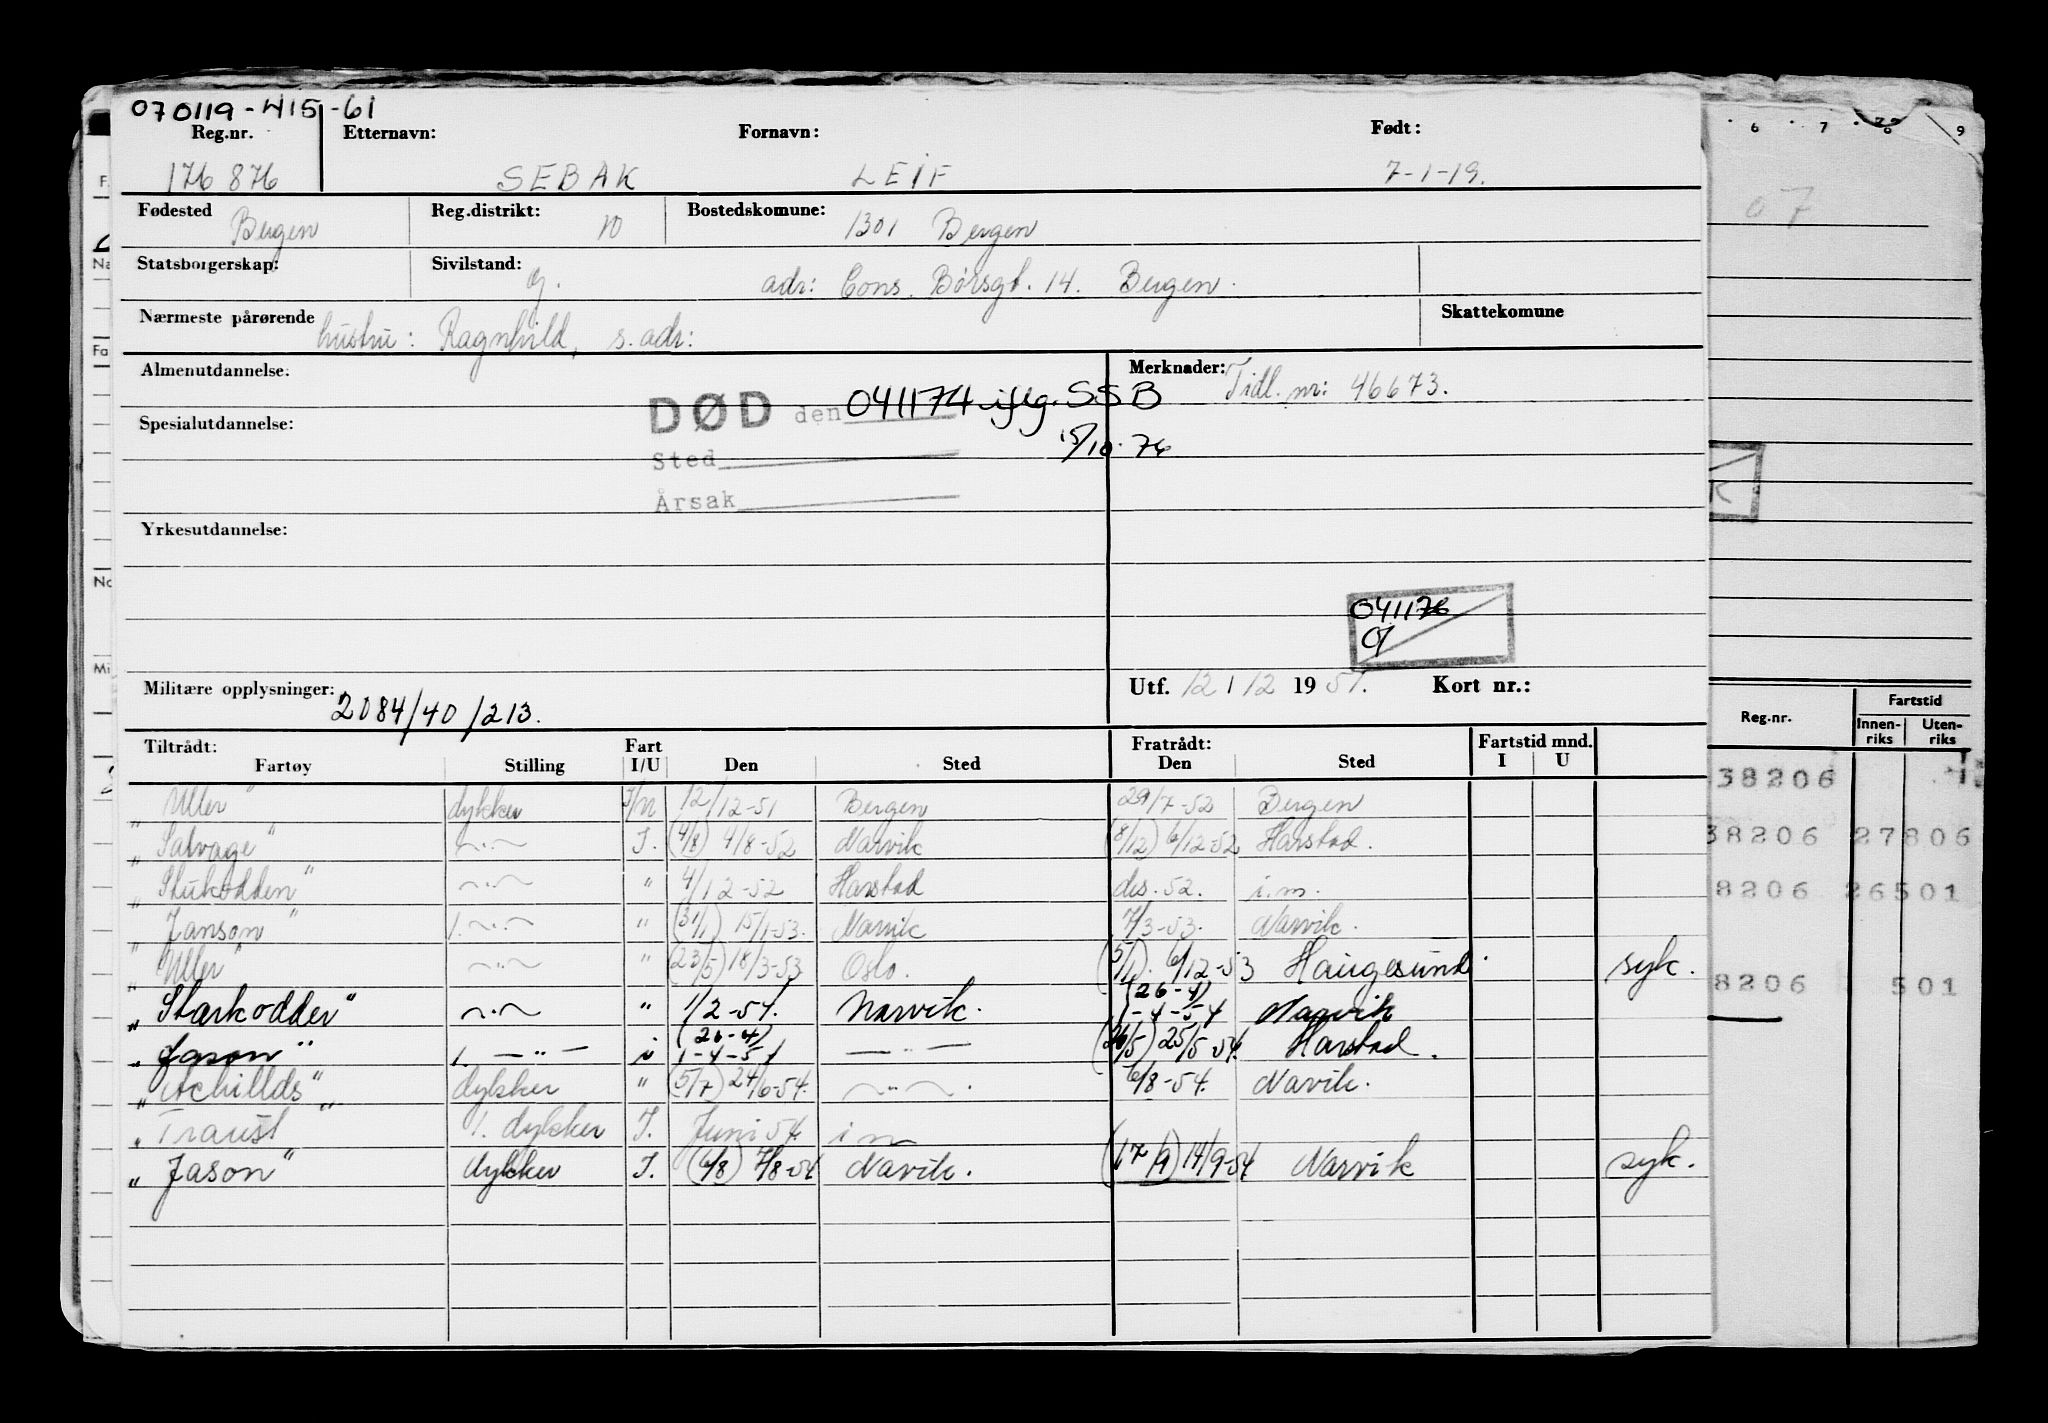 070119-415-61
Reg.nr. Etternavn: Fornavn: Født:
176 876 SEBAK LEIF 7-1-19.
Fødested Bergen Reg.distrikt: 10 Bostedskomune: 1301 Bergen
Statsborgerskap: Sivilstand: g. adr: Cons. Børsgt. 14. Bergen.
Nærmeste pårørende hustru: Ragnhild, s. adr: Skattekomune
Almenutdannelse: Merknader: Tidl. nr: 46673.
DØD den 041174 iflg. SSB
Spesialutdannelse: 15/10-76
Sted
Årsak
Yrkesutdannelse:
041176
Militære opplysninger: 2084/40/213. Utf. 12/12 1951. Kort nr.:
Tiltrådt: Fart Fratrådt: Fartstid mnd.
Fartøy Stilling I/U Den Sted Den Sted I U
"Uller" dykker I/U 12/12-51 Bergen 29/7-52 Bergen
"Salvage" -"- I. (4/8) 4/8-52 Narvik (8/12) 6/12-52 Harstad.
-"- " 4/12-52 Harstad des. 52. i.m.
"Janson" 1. -"- " (31/1) 15/1-53. Narvik 7/3-53. Narvik.
"Uller" -"- " (23/5) 18/3-53 Oslo. (5/1) 6/12-53 Haugesund. syk.
"Starkodder" -"- " 1/2-54. Narvik. (26-4) 1-4-54 Narvik
"Jason" 1. -"- i (26-4) 1-4-54 -"- (26/5) 25/5-54. Harstad.
"Achillds" dykker " (5/7) 24/6-54. -"-. 6/8-54. Narvik.
"Traust" 1. dykker I. Juni 54. i m
"Jason" dykker I. (6/8) 7/8-54 Narvik. (17/9) 14/9-54 Narvik syk.
6 7 8 9
07
Reg.nr. Fartstid
Innenriks Utenriks
38206
38206 27806
8206 26501
8206 501